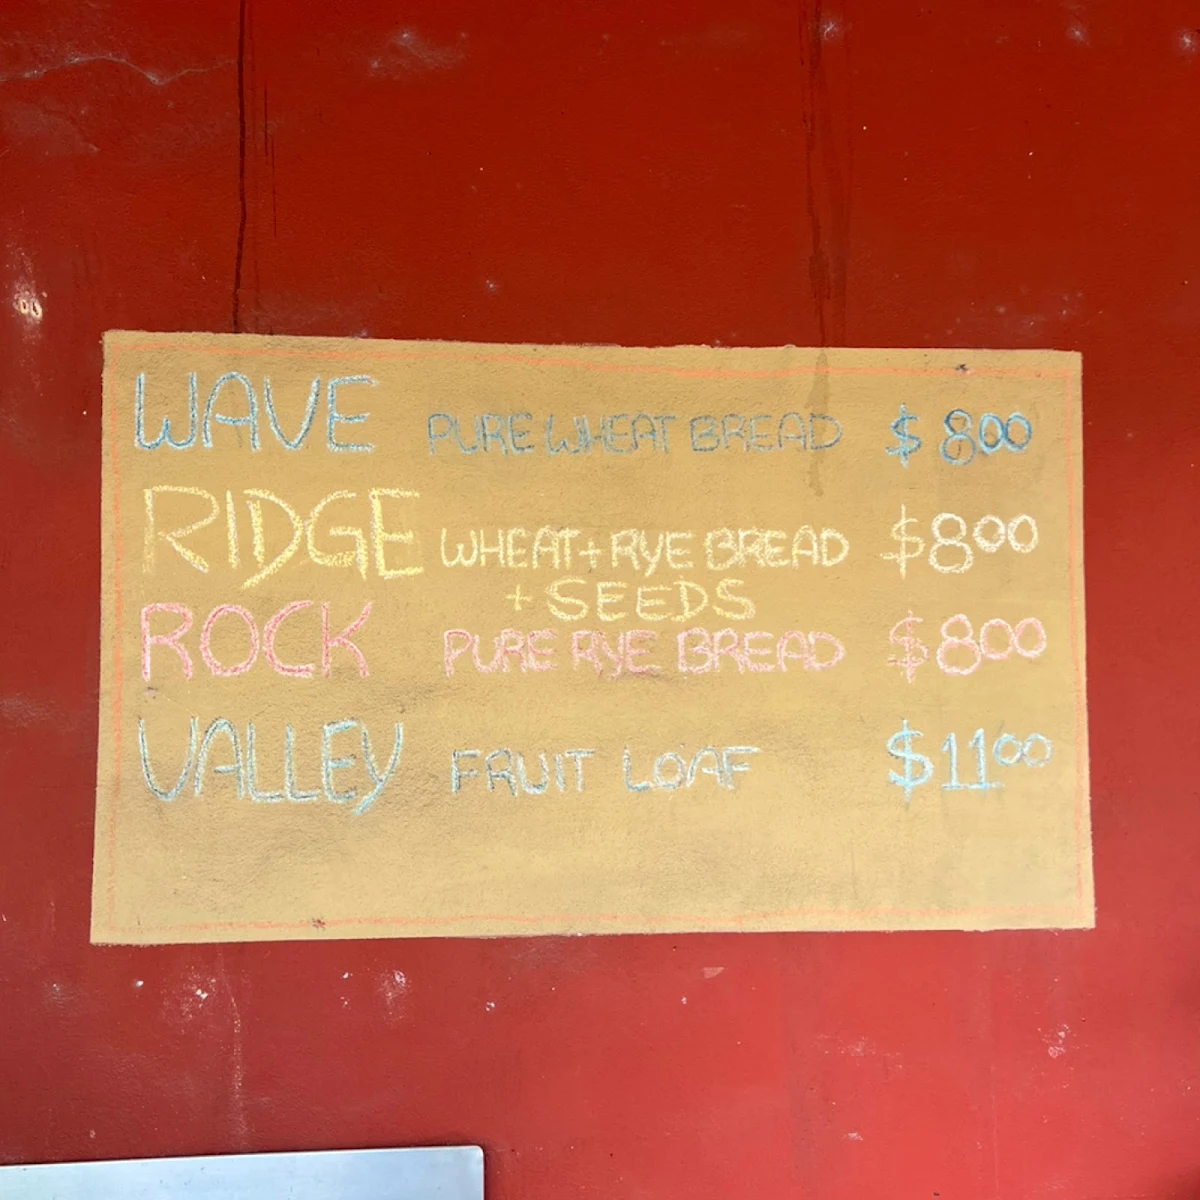 WAVE PURE WHEAT BREAD $8.00
RIDGE WHEAT+RYE BREAD $8.00
+ SEEDS
ROCK PURE RYE BREAD $8.00
VALLEY FRUIT LOAF $11.00